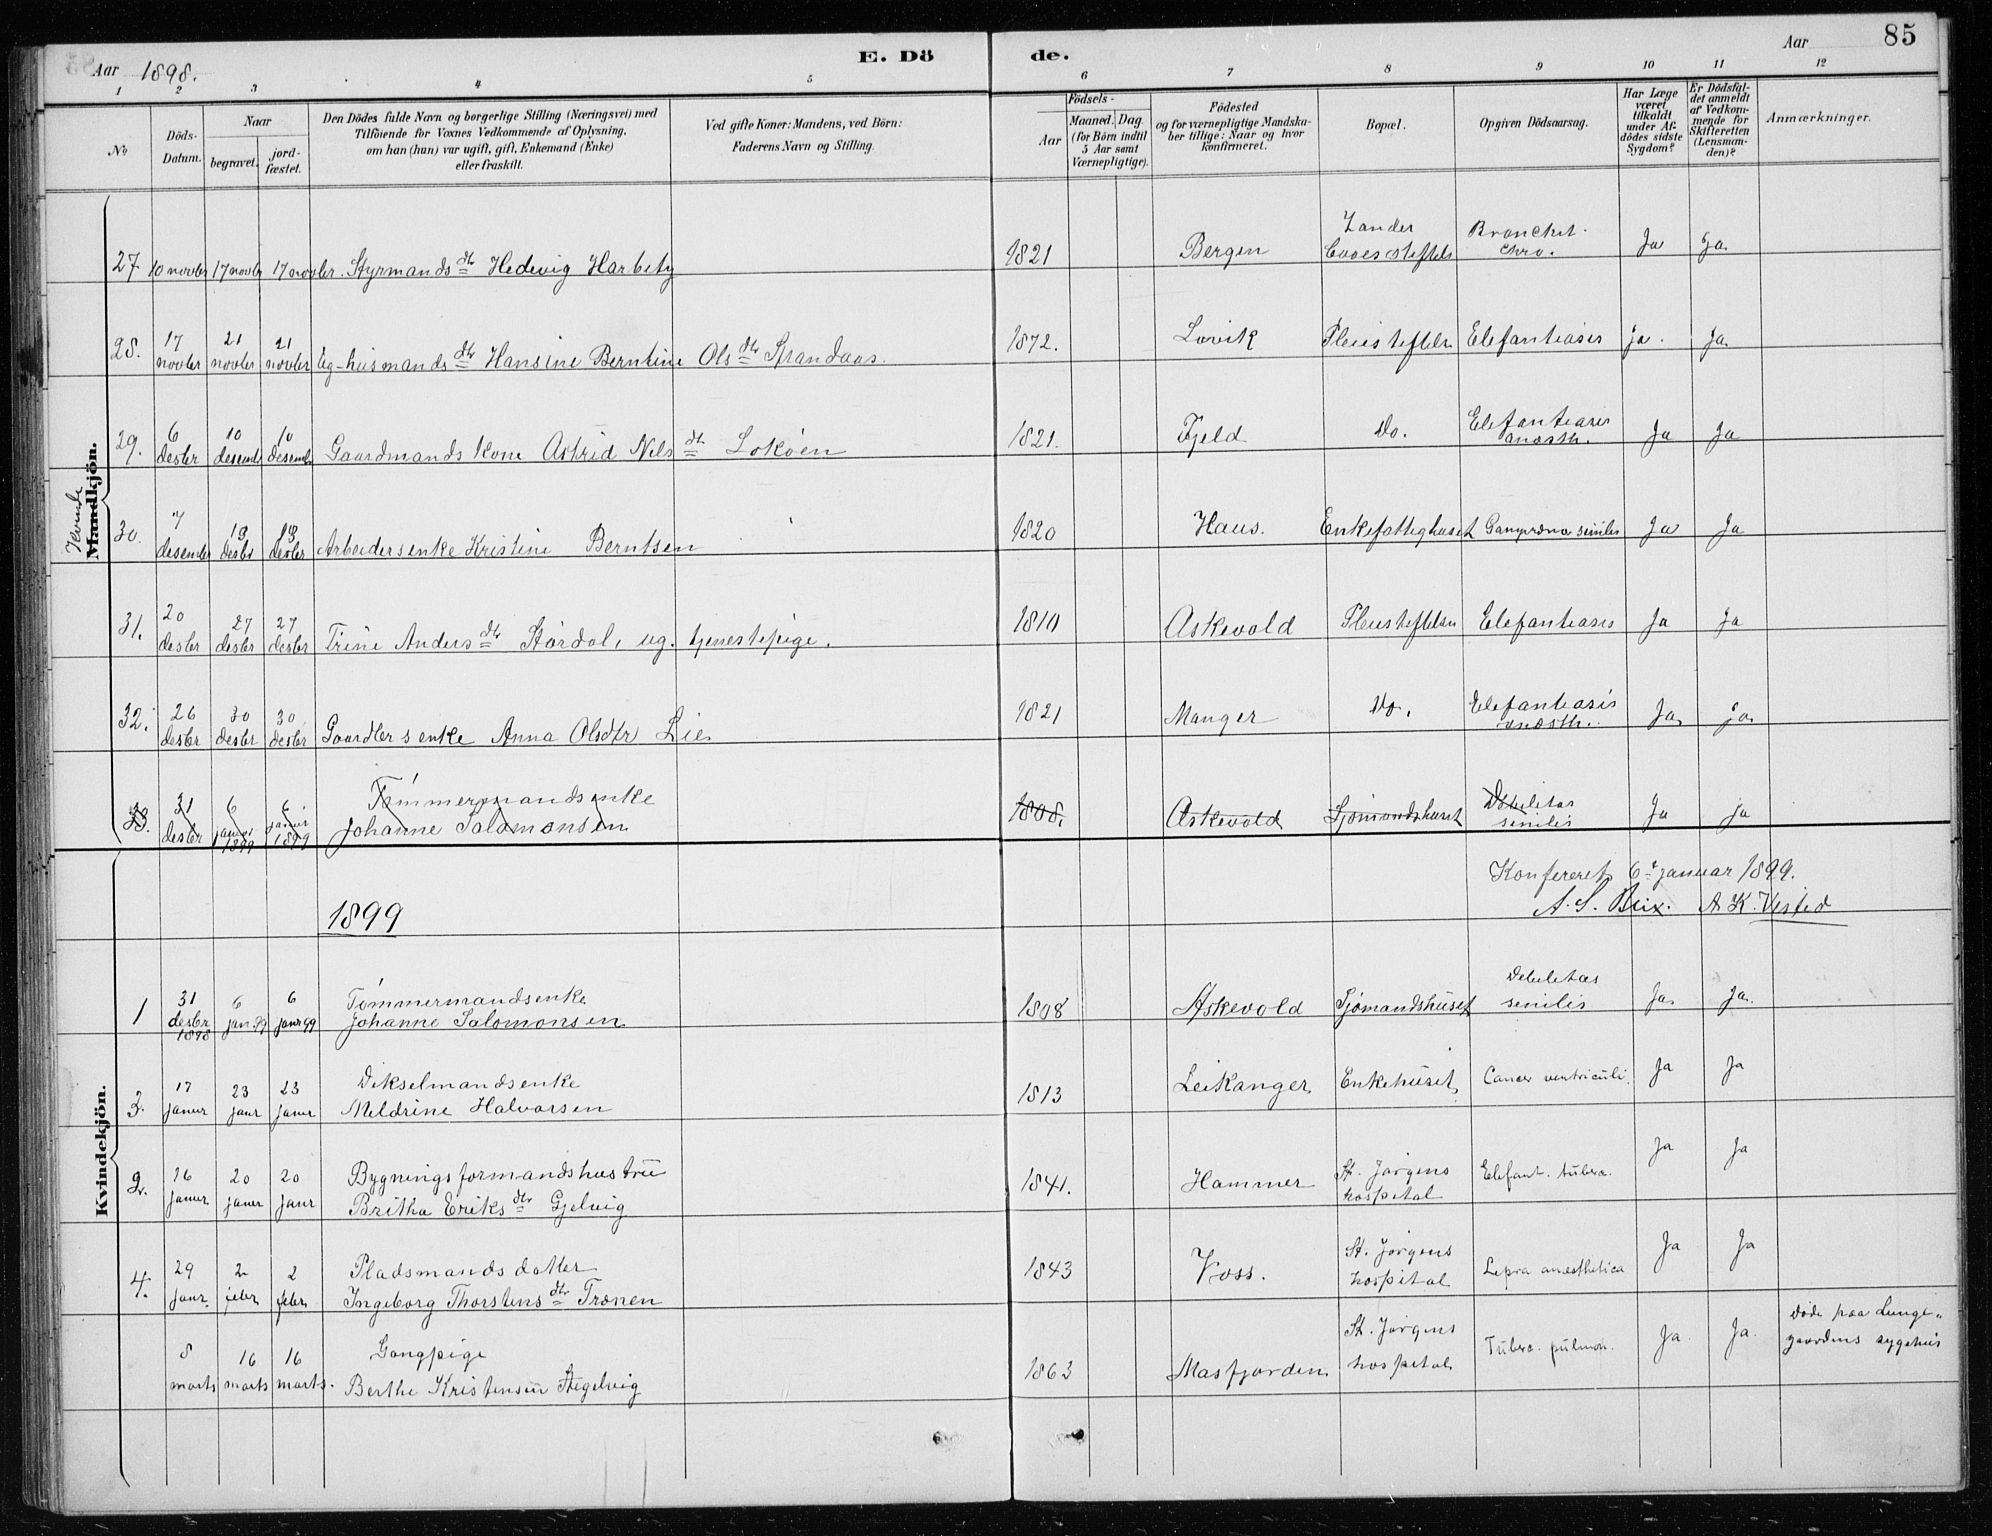 Aar 1898. E. Döde. Aar 85
1 2 3 4 5 6 7 8 9 10 11 12
No
Döds-Datum.
Naar
begravet.
jordfæstet.
Den Dödes fulde Navn og borgerlige Stilling (Næringsvei) med
Tilföiende for Voxnes Vedkommende af Oplysning,
om han (hun) var ugift, gift, Enkemand (Enke)
eller fraskilt.
Ved gifte Koner: Mandens, ved Börn:
Faderens Navn og Stilling.
Födsels-
Aar
Maaned.
Dag.
(for Börn indtil
5 Aar samt
Værnepligtige).
Födested
og for værnepligtige Mandska-
ber tillige: Naar og hvor
konfirmeret.
Bopæl.
Opgiven Dödsaarsag.
Har Læge
været
tilkaldt
under Af-
dödes sidste
Sygdom?
Er Dödsfal-
det anmeldt
af Vedkom-
mende for
Skifteretten
(Lensman-
den)?
Anmærkninger.
Kvinde
Mandkjön.
27. 10 novber 17 novbr 17 novber. Styrmandsdtr Hedevig Harbitz 1821 Bergen Zander Kaaes Steftels Bronchit. chro. Ja Ja
28. 17 novber 21 novber 21 novber Ug-husmandsdtr Hansine Berntine Olsdtr Strandaas. 1872. Lavik Pleiesteftelsn Elefantiasis Ja. Ja
29. 6 desbr 10 desembr 10 desembr Gaardmands Kone Astrid Nelsdtr Lokøen 1821. Fjeld Do. Elefantiasis anæsth. Ja Ja
30. 7 desember 13 desbr 13 desbr Arbeidersenke Kristine Berntsen 1820 Haus. Enkefattighuset Gangræna senilis Ja Ja
31. 20 desbr 27 desbr 27 desbr Trine Andersdtr Stardal, ug. tjenestepige. 1810 Askevold Pleiesteftelsn Elefantiasis Ja Ja
32. 26 desbr 30 desbr 30 desbr Gaardbrsenke Anna Olsdtr Lie 1821 Manger Do. Elefantiasis anæsth. Ja Ja
33. 31 desbr 6 januar 1899 6 januar 1899 Tømmermandsenke Johanne Salamonsen 1808. Askevold Sjømandshuset Debilitas senilis Ja Ja
Konfereret 6te januar 1899.
1899 A. S. Brix. A K. Visted
Kvindekjön.
1 31 desbr 1898 6 jan. 99 6 janr 99 Tømmermandsenke Johanne Salomonsen 1808 Askevold Sjømandshuset Debeletas senilis Ja Ja.
3. 17 janur 23 janr 23 janr Dikselmandsenke Meldrine Halvorsen 1813 Leikanger Enkehuset Cancer ventriculi. Ja Ja
2. 16 janur 20 janer 20 janr Bygningsformandshustru Britha Eriksdtr Gjelvig 1841. Hammer St. Jørgens hospital Elefant. tuberc. Ja Ja
4. 29 janr. 2 febr 2 febr Pladsmandsdatter Ingeborg Thorstensdtr Trønen 1843 Voss. St. Jørgens hospital Lepra anæsthetica Ja Ja
8 marts 16 marts 16 marts. Gangpige Berthe Kristensen 1863 Masfjorden St. Jørgens hospital Tuberc. pulmon. Ja Ja. Døde paa Lunge-
gaardens sygehus